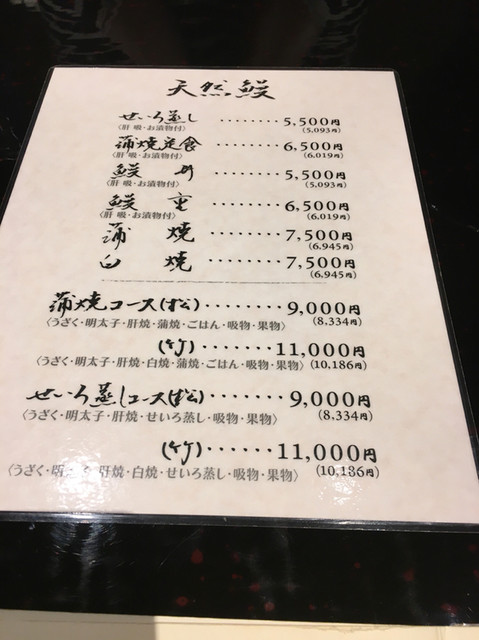 天然鰻
せいろ蒸し ········ 5,500円
(肝吸・お漬物付) (5.093円)
蒲焼定食 ········ 6,500円
(肝吸・お漬物付) (6.019円)
鰻丼 ········ 5,500円
(肝吸・お漬物付) (5.093円)
鰻重 ········ 6,500円
(肝吸・お漬物付) (6.019円)
蒲焼 ········ 7,500円
(6.945円)
白焼 ········ 7,500円
(6.945円)
蒲焼コース(松) ········ 9,000円
〈うざく・明太子・肝焼・蒲焼・ごはん・吸物・果物〉 (8,334円)
(竹) ······· 11,000円
〈うざく・明太子・肝焼・白焼・蒲焼・ごはん・吸物・果物〉 (10,186円)
せいろ蒸しコース(松) ······· 9,000円
〈うざく・明太子・肝焼・せいろ蒸し・吸物・果物〉 (8,334円)
(竹) ······ 11,000円
〈うざく・明太子・肝焼・白焼・せいろ蒸し・吸物・果物〉 (10,186円)